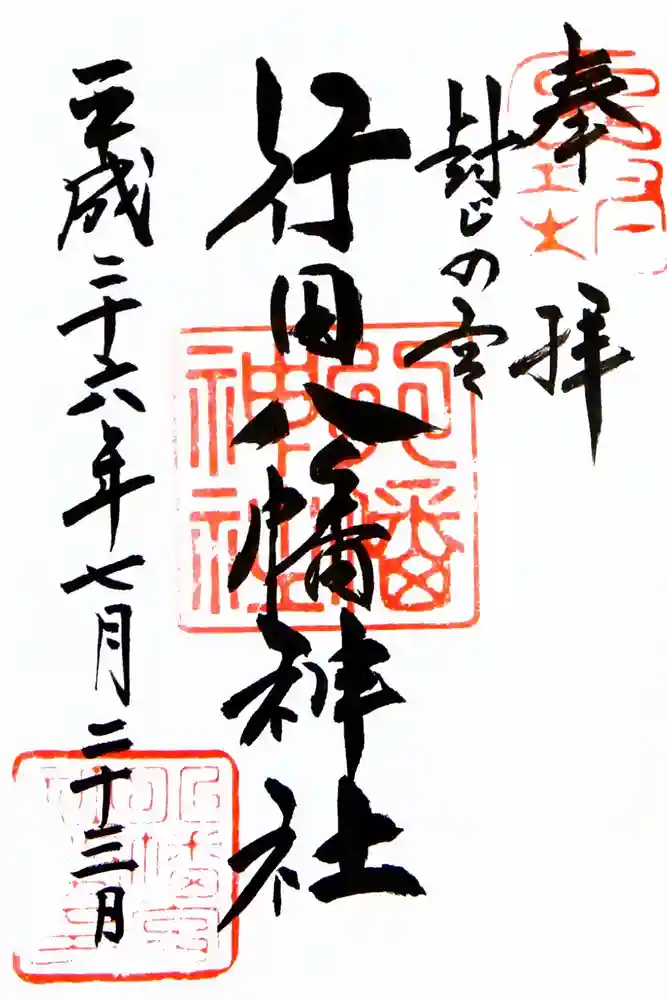 奉拝
封じの宮
行田八幡神社
平成二十六年七月二十三日
八幡神社